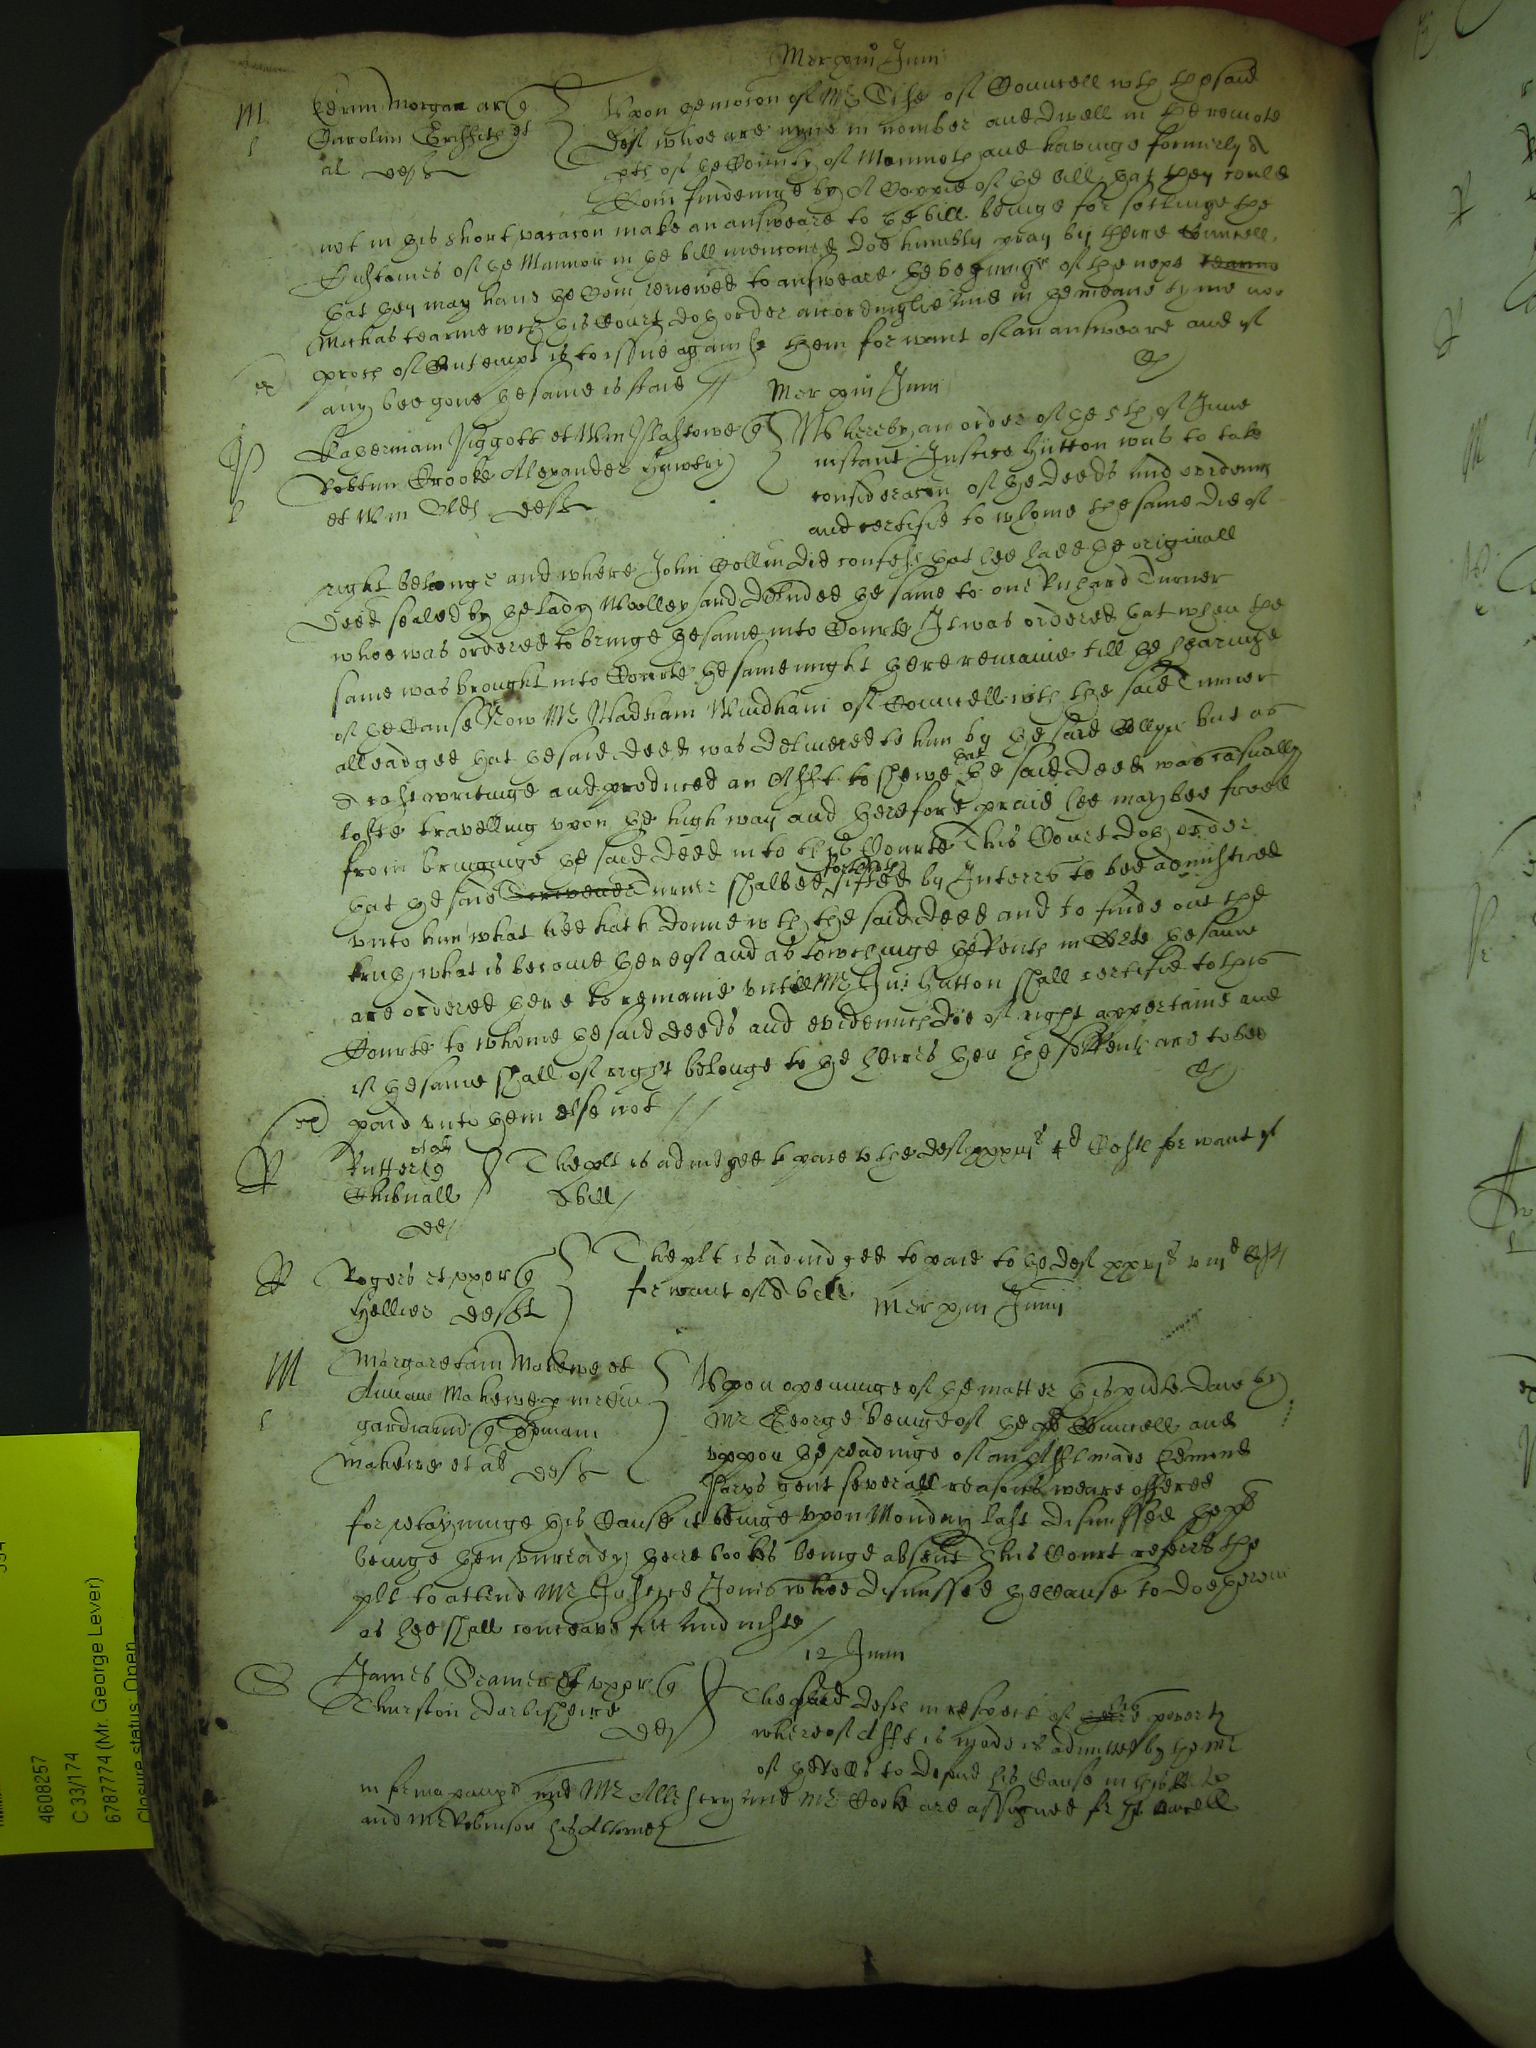 Mer xviii Junii
M
Morgan ar q
Carolum et
al defts
Upon the mocon of Mr of Councell wth the said
deftes whoe are nyne in nomber and dwell in the remote
ptes of the County of Monmoth and havinge formerly
Com findeinge by A Coppie of the bill that they could
not in this short vacacon make an answeare to the bill beinge for setlinge the
Customes of the Mannor in the bill menconed doe humbly pray by theire Councell
that they may have the Com renewed to answeare the beginnge of the next tearme
Michas tearme wch this Court doth order accordinglie And in the meane tyme noe
proces of Contempt is to issue against them for want of an answeare and if
any bee gone the same is staied
Mer xviii Junii
P
Piggott et Wm q
Robtum Brooke Alexander
et Wm defts
Whereby an order of the 5th of June
instant Justice Hutton was to take
consideracon of the deeds and evidence
and certifie to whome the same did of
right belonge and where John Collin did confesse that hee had the originall
deed sealed by the lady Woolley and deliuded the same to one Richard Turner
whoe was ordered to bringe the same into Courte It was ordered that when the
same was brought into Courte the same might there remaine till the hearinge
of the Cause Now Mr Wadham Windham of Councell wth the said Turner
alleadged that the said deed was delivered to him by the said Collyn but as
a wast writinge and produced an Afft to shewe that the said deed was casually
loste travelling upon the high way and therefore praied hee may bee freed
from bringinge the said deed into this Courte This Court doth order
that the said Turner shalbee sifted by Interrs to bee administred
unto him what hee hath donne wth the said deed and to finde out the
truth what is become thereof and as towchinge the Rents in Corte the same
are ordered there to remaine untill Mr Jus Hutton shall certifie to this
Courte to whome the said deeds and evidences doe of right appertaine and
if the same shall of right belonge to the heires then the Rents are to bee
paid unto them else not
R
et al
Rutter q
Chibnall
def
The plt is adiudged to paie to the deft xxxvis 4d Costs for want of
A bill
R
Rogers et uxor q
Hellier deft
The plt is adiudged to paie to the deft xxvis viiid Costs
for want of A bill
Mer xviii Junii
M
Margaretam Mathewe et
Annam Mathewe p
gardianu q
Mathewe et al defts
Upon openinge of the matter this psente daie by
Mr George beinge of the plts Councell and
uppon the readinge of an Afft made
gent severall reasons weare offered
for retayninge this Cause it beinge upon Monday last dismissed the plts
beinge then unready theire books beinge absent This Court referrs the
plt to attend Mr Justice Jones whoe dismissed the Cause to doe therein
as hee shall conceave fitt and iuste
12 Junii
S
James Seamer et uxor q
Thurston Darbisheire
def
The said deft in respect of his poverty
whereof Afft is made is admitted by the Mr
of the Rolls to defend this Cause in this Corte
in forma paup and Mr and Mr Cooke are assigned for his Councell
and Mr Robinson his Attorney
4608257
C 33/174
6787774 (Mr. George Lever)
Closure status: Open